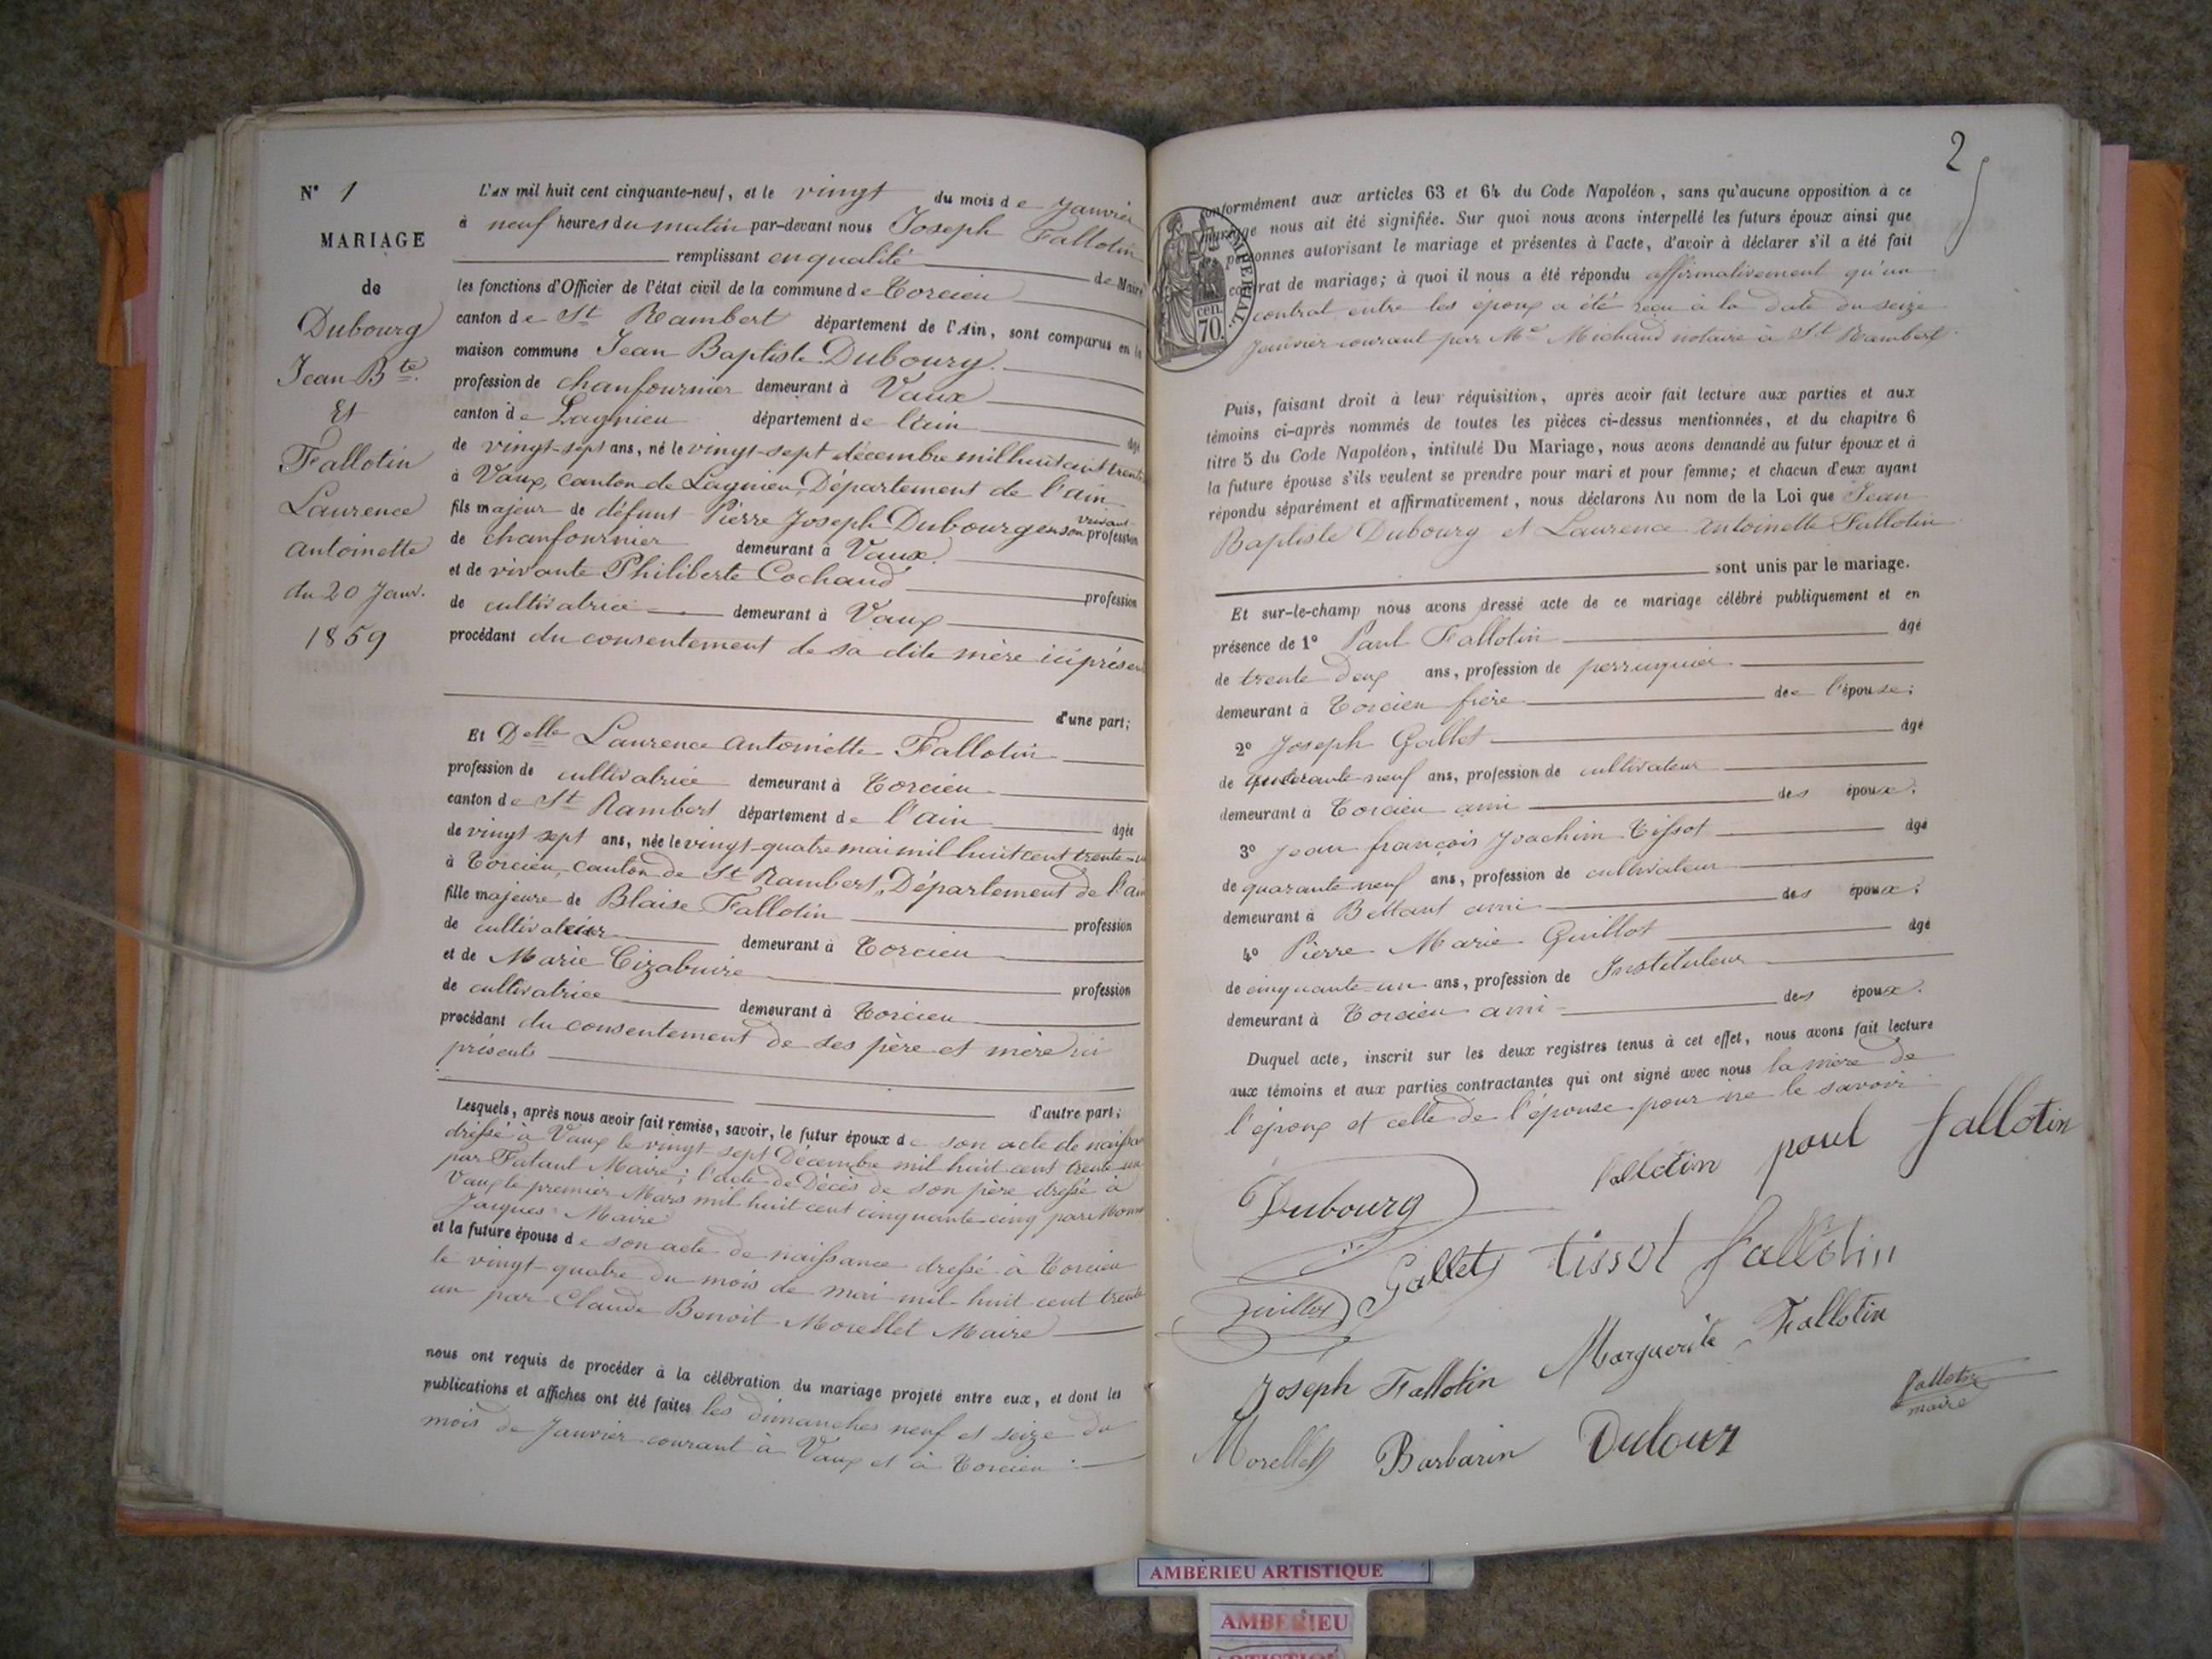 N° 1
MARIAGE
de
Dubourg
Jean Bte.
Et
Fallotin
Laurence
antoinette
du 20 Janv.
1859
L'AN mil huit cent cinquante-neuf, et le vingt du mois de Janvier
à neuf heures du matin par-devant nous Joseph Fallotin
remplissant en qualité de Maire
les fonctions d'Officier de l'état civil de la commune de Torcieu
canton de St Rambert département de l'Ain, sont comparus en la
maison commune Jean Baptiste Dubourg.
profession de chaufournier demeurant à Vaux
canton de Lagnieu département de l'ain âgé
de vingt-sept ans, né le vingt-sept décembre mil huit cent trente
à Vaux, canton de Lagnieu, Département de l'ain
fils majeur de défunt Pierre Joseph Dubourg en son vivant profession
de chaufournier demeurant à Vaux
et de vivante Philiberte Cochand profession
de cultivatrice demeurant à Vaux
procédant du consentement de sa dite mère ici présen
d'une part;
Et Delle Laurence antoinette Fallotin
profession de cultivatrice demeurant à Torcieu
canton de St Rambert département de l'ain âgée
de vingt sept ans, née le vingt-quatre mai mil huit cent trente-un
à Torcieu, canton de St Rambert, Département de l'ain
fille majeure de Blaise Fallotin profession
de cultivateur demeurant à Torcieu
et de Marie Cizabuire profession
de cultivatrice demeurant à Torcieu
procédant du consentement de ses père et mère ici
présents
d'autre part;
Lesquels, après nous avoir fait remise, savoir, le futur époux de son acte de naissa
dressé à Vaux le vingt-sept Décembre mil huit cent trente un
par Maire; l'acte de Décès de son père dressé à
Vaux le premier Mars mil huit cent cinquante-cinq par
Jacques Maire
et la future épouse de son acte de naissance dressé à Torcieu
le vingt-quatre du mois de mai mil huit cent trente
un par Claude Benoit Morellet Maire
nous ont requis de procéder à la célébration du mariage projeté entre eux, et dont les
publications et affiches ont été faites les dimanches neuf et seize du
mois de Janvier courant à Vaux et à Torcieu
2
IMPÉRIAL.
cen.
70.
conformément aux articles 63 et 64 du Code Napoléon, sans qu'aucune opposition à ce
mariage nous ait été signifiée. Sur quoi nous avons interpellé les futurs époux ainsi que
les personnes autorisant le mariage et présentes à l'acte, d'avoir à déclarer s'il a été fait
contrat de mariage; à quoi il nous a été répondu affirmativement qu'un
contrat entre les époux a été reçu à la date du seize
Janvier courant par Me Michaud notaire à St Rambert.
Puis, faisant droit à leur réquisition, après avoir fait lecture aux parties et aux
témoins ci-après nommés de toutes les pièces ci-dessus mentionnées, et du chapitre 6
titre 5 du Code Napoléon, intitulé Du Mariage, nous avons demandé au futur époux et à
la future épouse s'ils veulent se prendre pour mari et pour femme; et chacun d'eux ayant
répondu séparément et affirmativement, nous déclarons Au nom de la Loi que Jean
Baptiste Dubourg et Laurence antoinette Fallotin
sont unis par le mariage.
Et sur-le-champ nous avons dressé acte de ce mariage célébré publiquement et en
présence de 1° Paul Fallotin âgé
de trente deux ans, profession de perruquier
demeurant à Torcieu frère de l'épouse;
2° Joseph Gallet âgé
de quarante-neuf ans, profession de cultivateur
demeurant à Torcieu ami des époux.
3° Jean françois Joachim Tissot âgé
de quarante-neuf ans, profession de cultivateur
demeurant à Bettant ami des époux.
4° Pierre Marie Guillot âgé
de cinquante-un ans, profession de Instituteur
demeurant à Torcieu ami des époux.
Duquel acte, inscrit sur les deux registres tenus à cet effet, nous avons fait lecture
aux témoins et aux parties contractantes qui ont signé avec nous la mère de
l'époux et celle de l'épouse pour ne le savoir
fallotin paul fallotin
Dubourg
Gallet tissot fallotin
Guillot
Joseph Fallotin Marguerite Fallotin
Fallotin
maire
Morellet Barbarin Dufour
AMBÉRIEU ARTISTIQUE
AMBERIEU
ARTISTIQUE